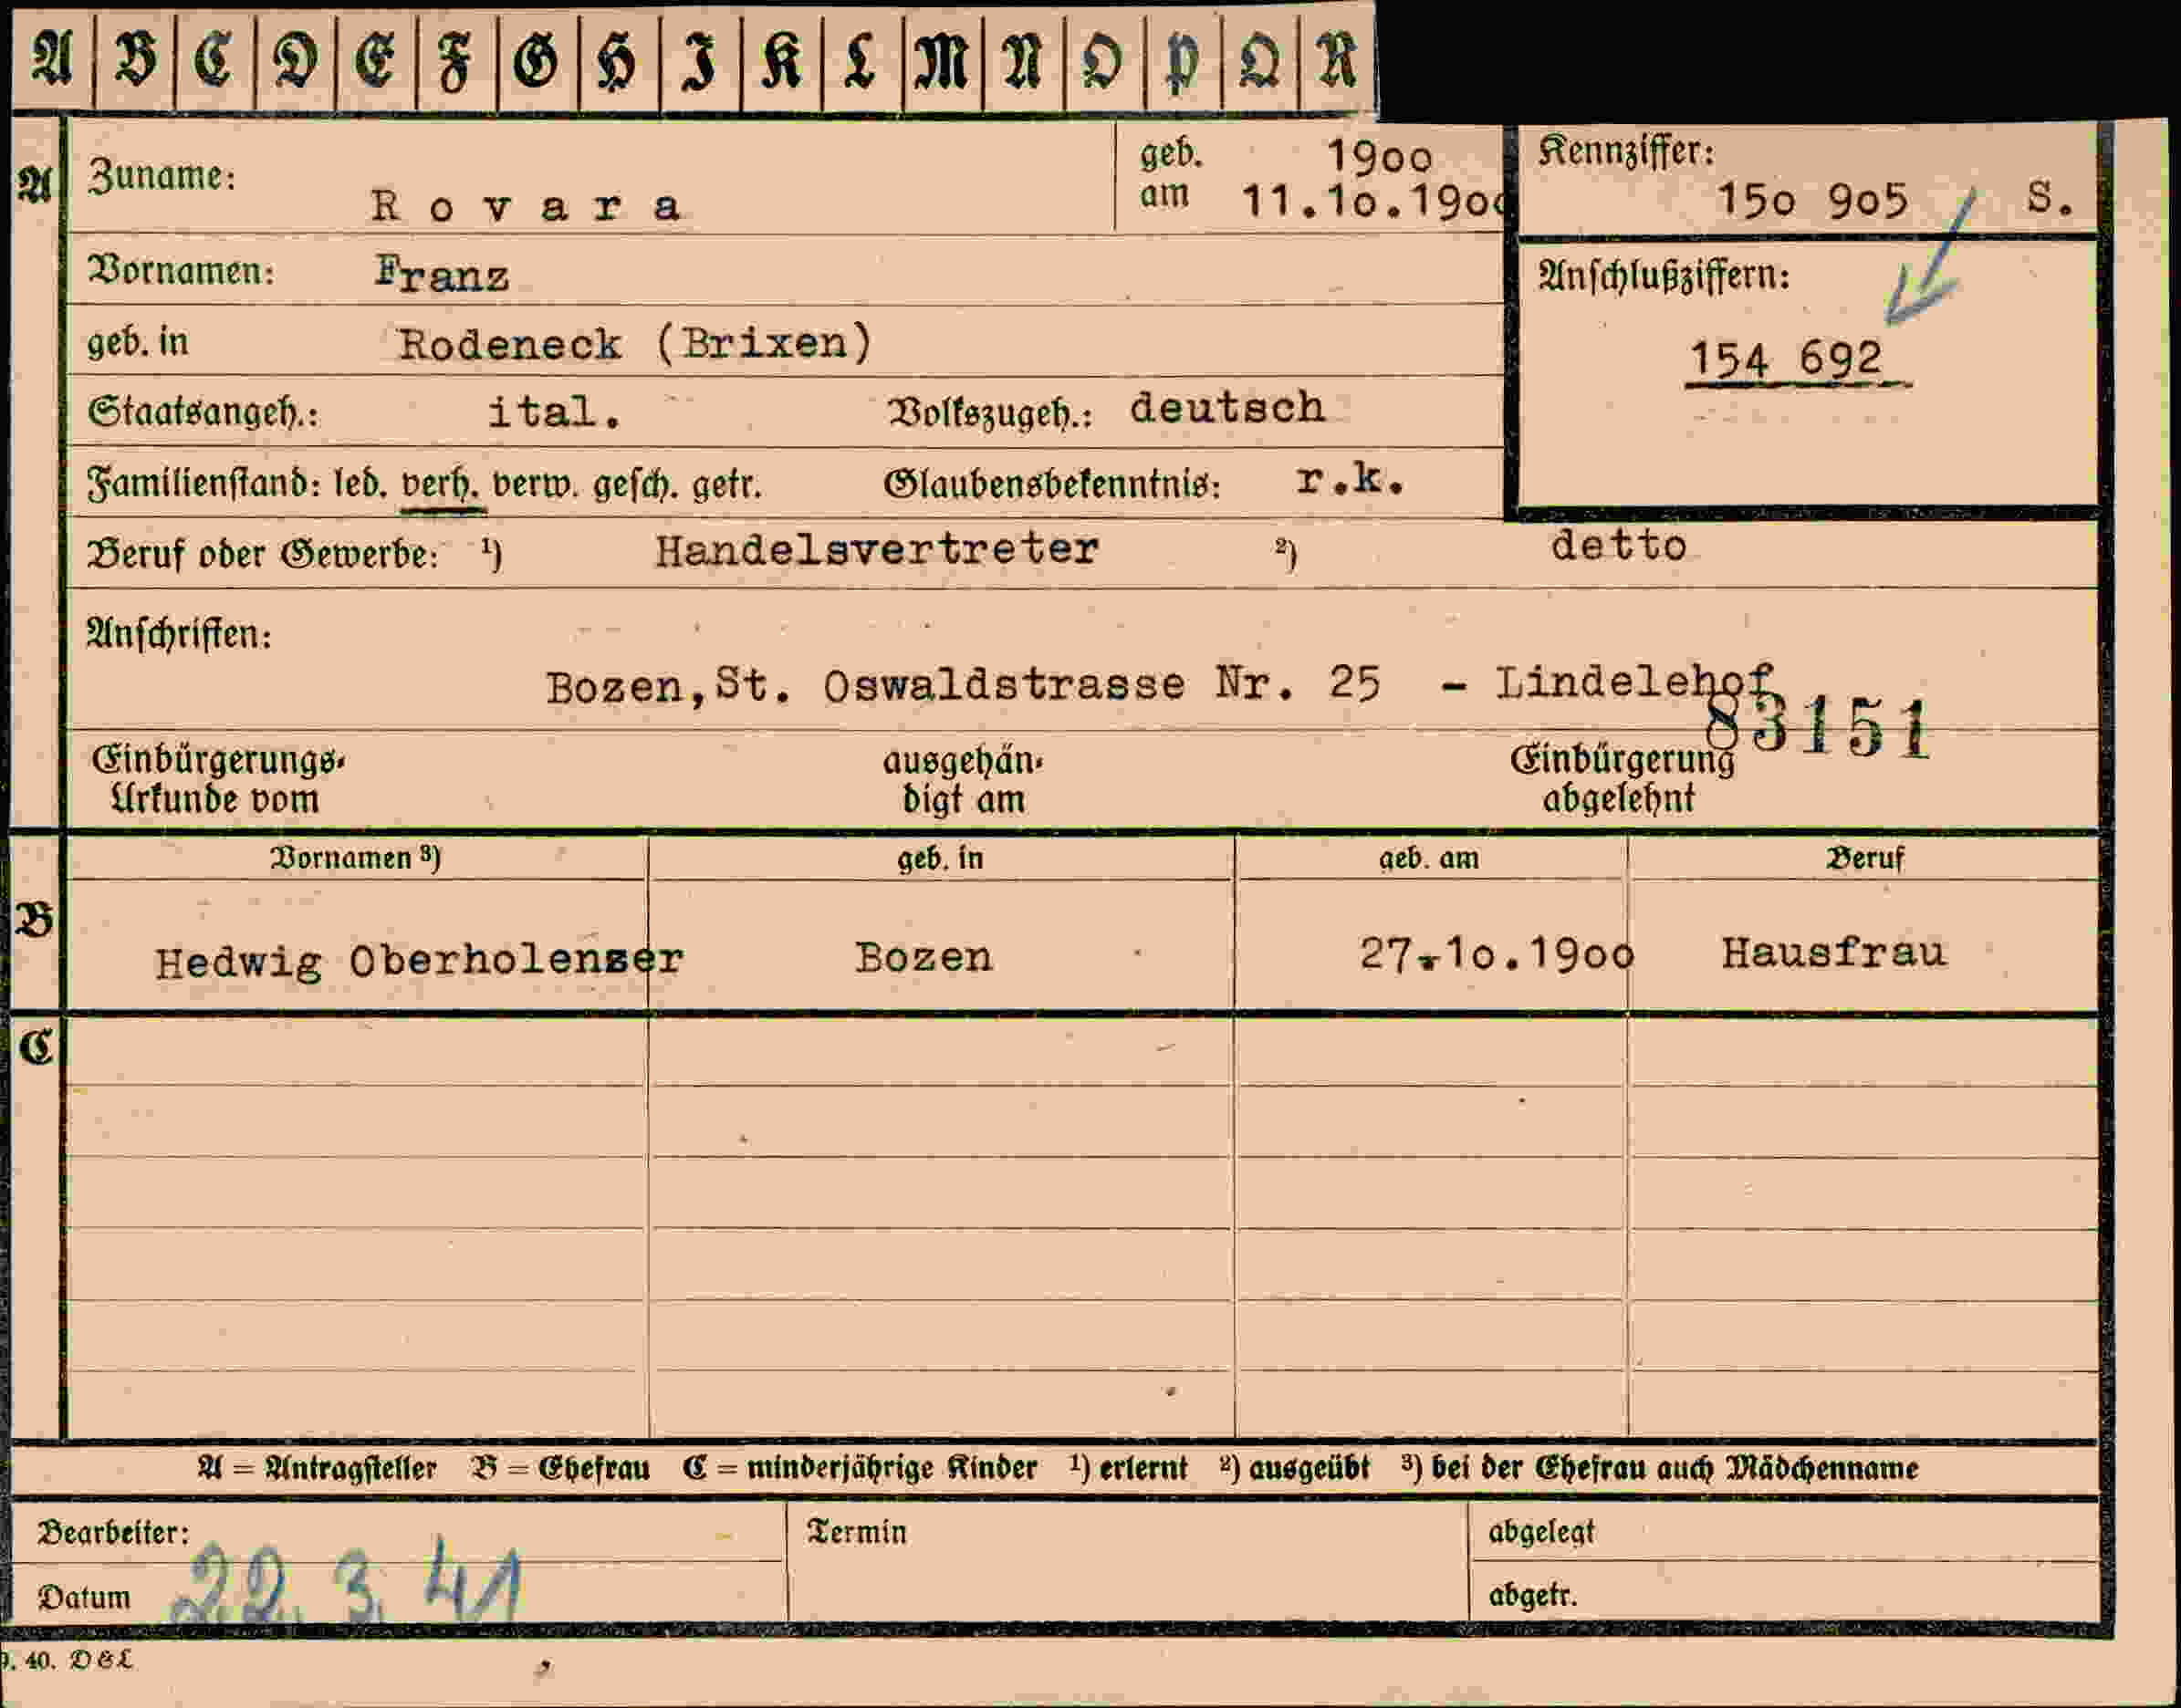 A B C D E F G H I K L M N O P Q R
A
Zuname: Rovara
geb. 1900
am 11.10.1900
Kennziffer:
150 905 S.
Vornamen: Franz
Anschlußziffern:
154 692
geb. in Rodeneck (Brixen)
Staatsangeh.: ital. Volkszugeh.: deutsch
Familienstand: led. verh. verw. gesch. getr. Glaubensbekenntnis: r.k.
Beruf oder Gewerbe: 1) Handelsvertreter 2) detto
Anschriften:
Bozen, St. Oswaldstrasse Nr. 25 - Lindelehof
83151
Einbürgerungs-
Urkunde vom
ausgehän-
digt am
Einbürgerung
abgelehnt
B
Vornamen 3) geb. in geb. am Beruf
Hedwig Oberholenzer Bozen 27.10.1900 Hausfrau
C
A = Antragsteller B = Ehefrau C = minderjährige Kinder 1) erlernt 2) ausgeübt 3) bei der Ehefrau auch Mädchenname
Bearbeiter: Termin abgelegt
Datum 22. 3. 41 abgetr.
9. 40. D&L